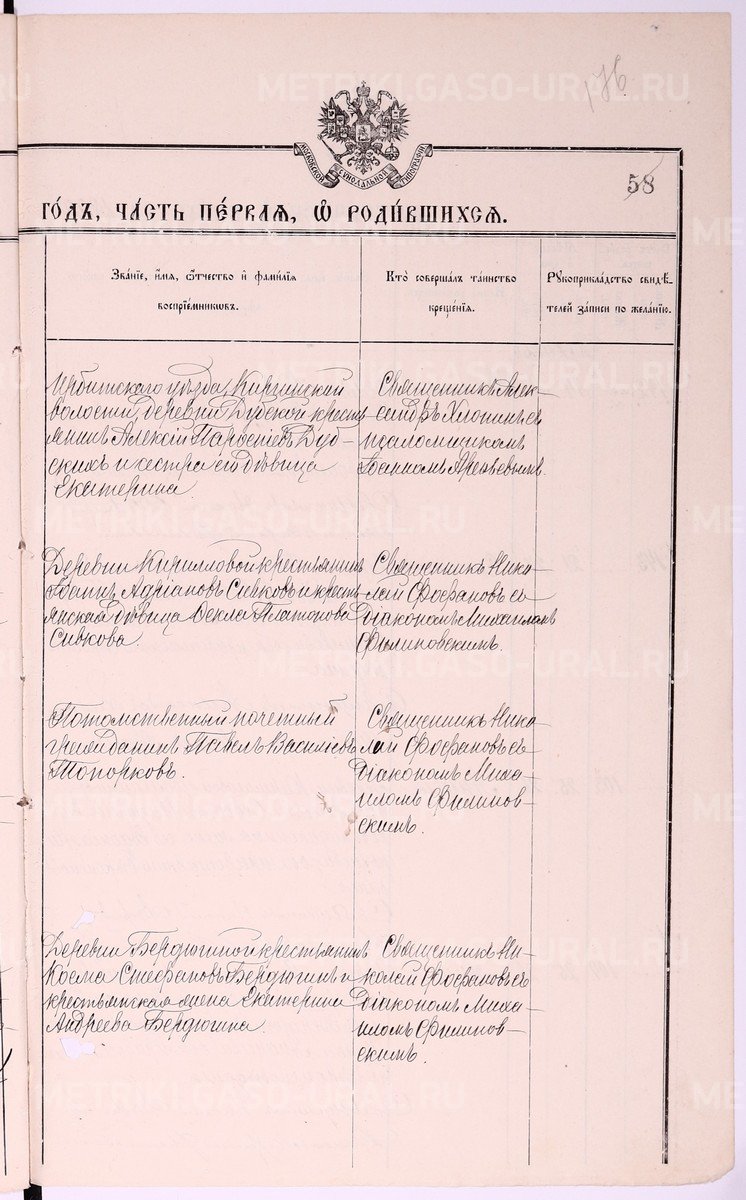 176
МОСКОВСКОЙ СѴНОДАЛЬНОЙ ТИПОГРАФІИ
58
ГОДЪ, ЧАСТЬ ПЕРВАѦ, Ѿ РОДИВШИХСѦ.
Званіе, имѧ, ѻтчество и фамиліѧ
воспріемниковъ.
Кто совершалъ таинство
крещеніѧ.
Рукоприкладство свидѣ-
телей записи по желанію.
Ирбитскаго уѣзда, Киргинской
волости, деревни Дубской кресть
янинъ Алексій Парѳеніевъ Дуб-
скихъ и сестра его дѣвица
Екатерина.
Священникъ Алек-
сандръ Хлопинъ съ
псаломщикомъ
Іоанномъ Арефьевымъ.
Деревни Кирилловой крестьянинъ
Іоаннъ Адріановъ Сивковъ и кресть
янская дѣвица Ѳекла Платонова
Сивкова.
Священникъ Нико-
лай Ѳеофановъ съ
діакономъ Михаиломъ
Филиповскимъ.
Потомственный почетный
гражданинъ Павелъ Василіевъ
Топорковъ.
Священникъ Нико-
лай Ѳеофановъ съ
діакономъ Миха-
иломъ Филипов-
скимъ.
Деревни Бердюгиной крестьянинъ
Косма Стефановъ Бердюгинъ и
крестьянская жена Екатерина
Андреева Бердюгина.
Священникъ Ни-
колай Ѳеофановъ съ
діакономъ Миха-
иломъ Филипов-
скимъ.
METRIKI.GASO-URAL.RU